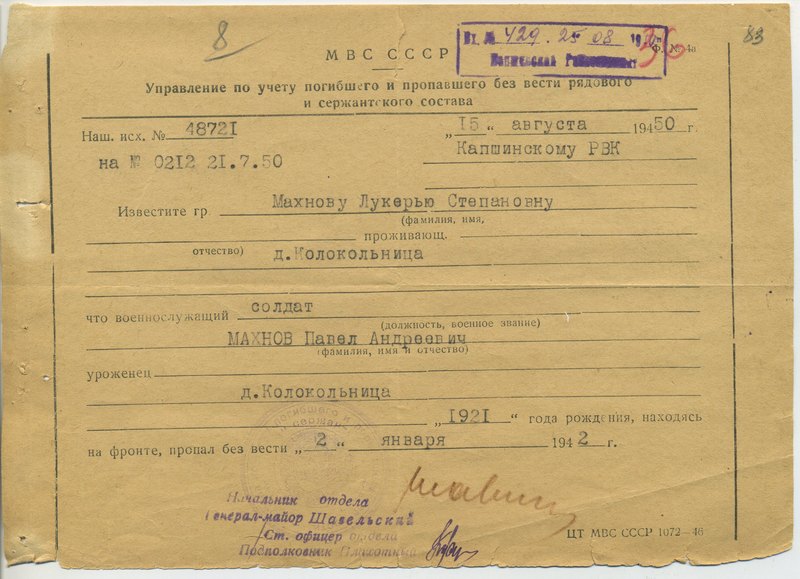 8
83
М В С С С С Р
Вх. № 429. 25 08
36
Ф. № 4а
Управление по учету погибшего и пропавшего без вести рядового
и сержантского состава
Наш. исх. № 48721
„15“ августа 1950 г.
на № 0212 21.7.50
Капшинскому РВК
Известите гр Махнову Лукерью Степановну
(фамилия, имя,
проживающ.
отчество) д.Колокольница
что военнослужащий солдат
(должность, военное звание)
МАХНОВ Павел Андреевич
(фамилия, имя и отчество)
уроженец
д.Колокольница
„1921“ года рождения, находясь
на фронте, пропал без вести „2“ января 1942 г.
Начальник отдела
Генерал-майор Шавельский
Ст. офицер отдела
Подполковник
ЦТ МВС СССР 1072—46